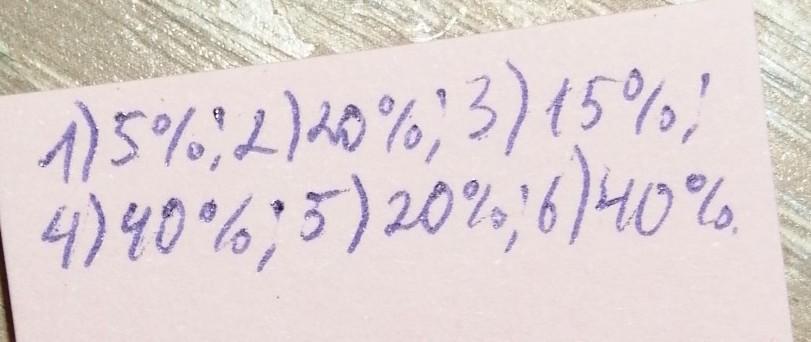 1) 5%; 2) 20%; 3) 15%;
4) 40%; 5) 20%; 6) 40%.